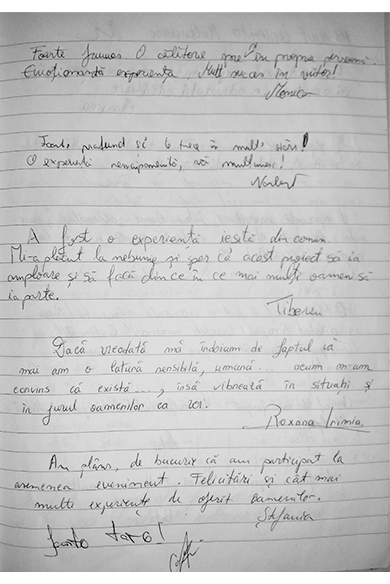 Foarte frumos. O călătorie spre în propria persoană.
Emoționantă experiența. Mult succes în viitor!
Monica
Foart, profund să te trece în multe stări!
O experiență nemaipomenită, vă mulțumesc!
A fost o experiență ieșită din comun.
Mi-a plăcut la nebunie și sper că acest proiect să ia
amploare și să facă din ce în ce mai mulți oameni să
ia parte.
Tiberiu
Dacă vreodată mă îndoiam de faptul că
mai am o latură sensibilă, umană... acum m-am
convins că există..., însă vibrează în situații și
în jurul oamenilor ca voi.
Roxana Irimia
Am plâns, de bucurie că am participat la
asemenea eveniment. Felicitări și cât mai
multe experiențe de oferit oamenilor.
Ștefania
foarte tare!